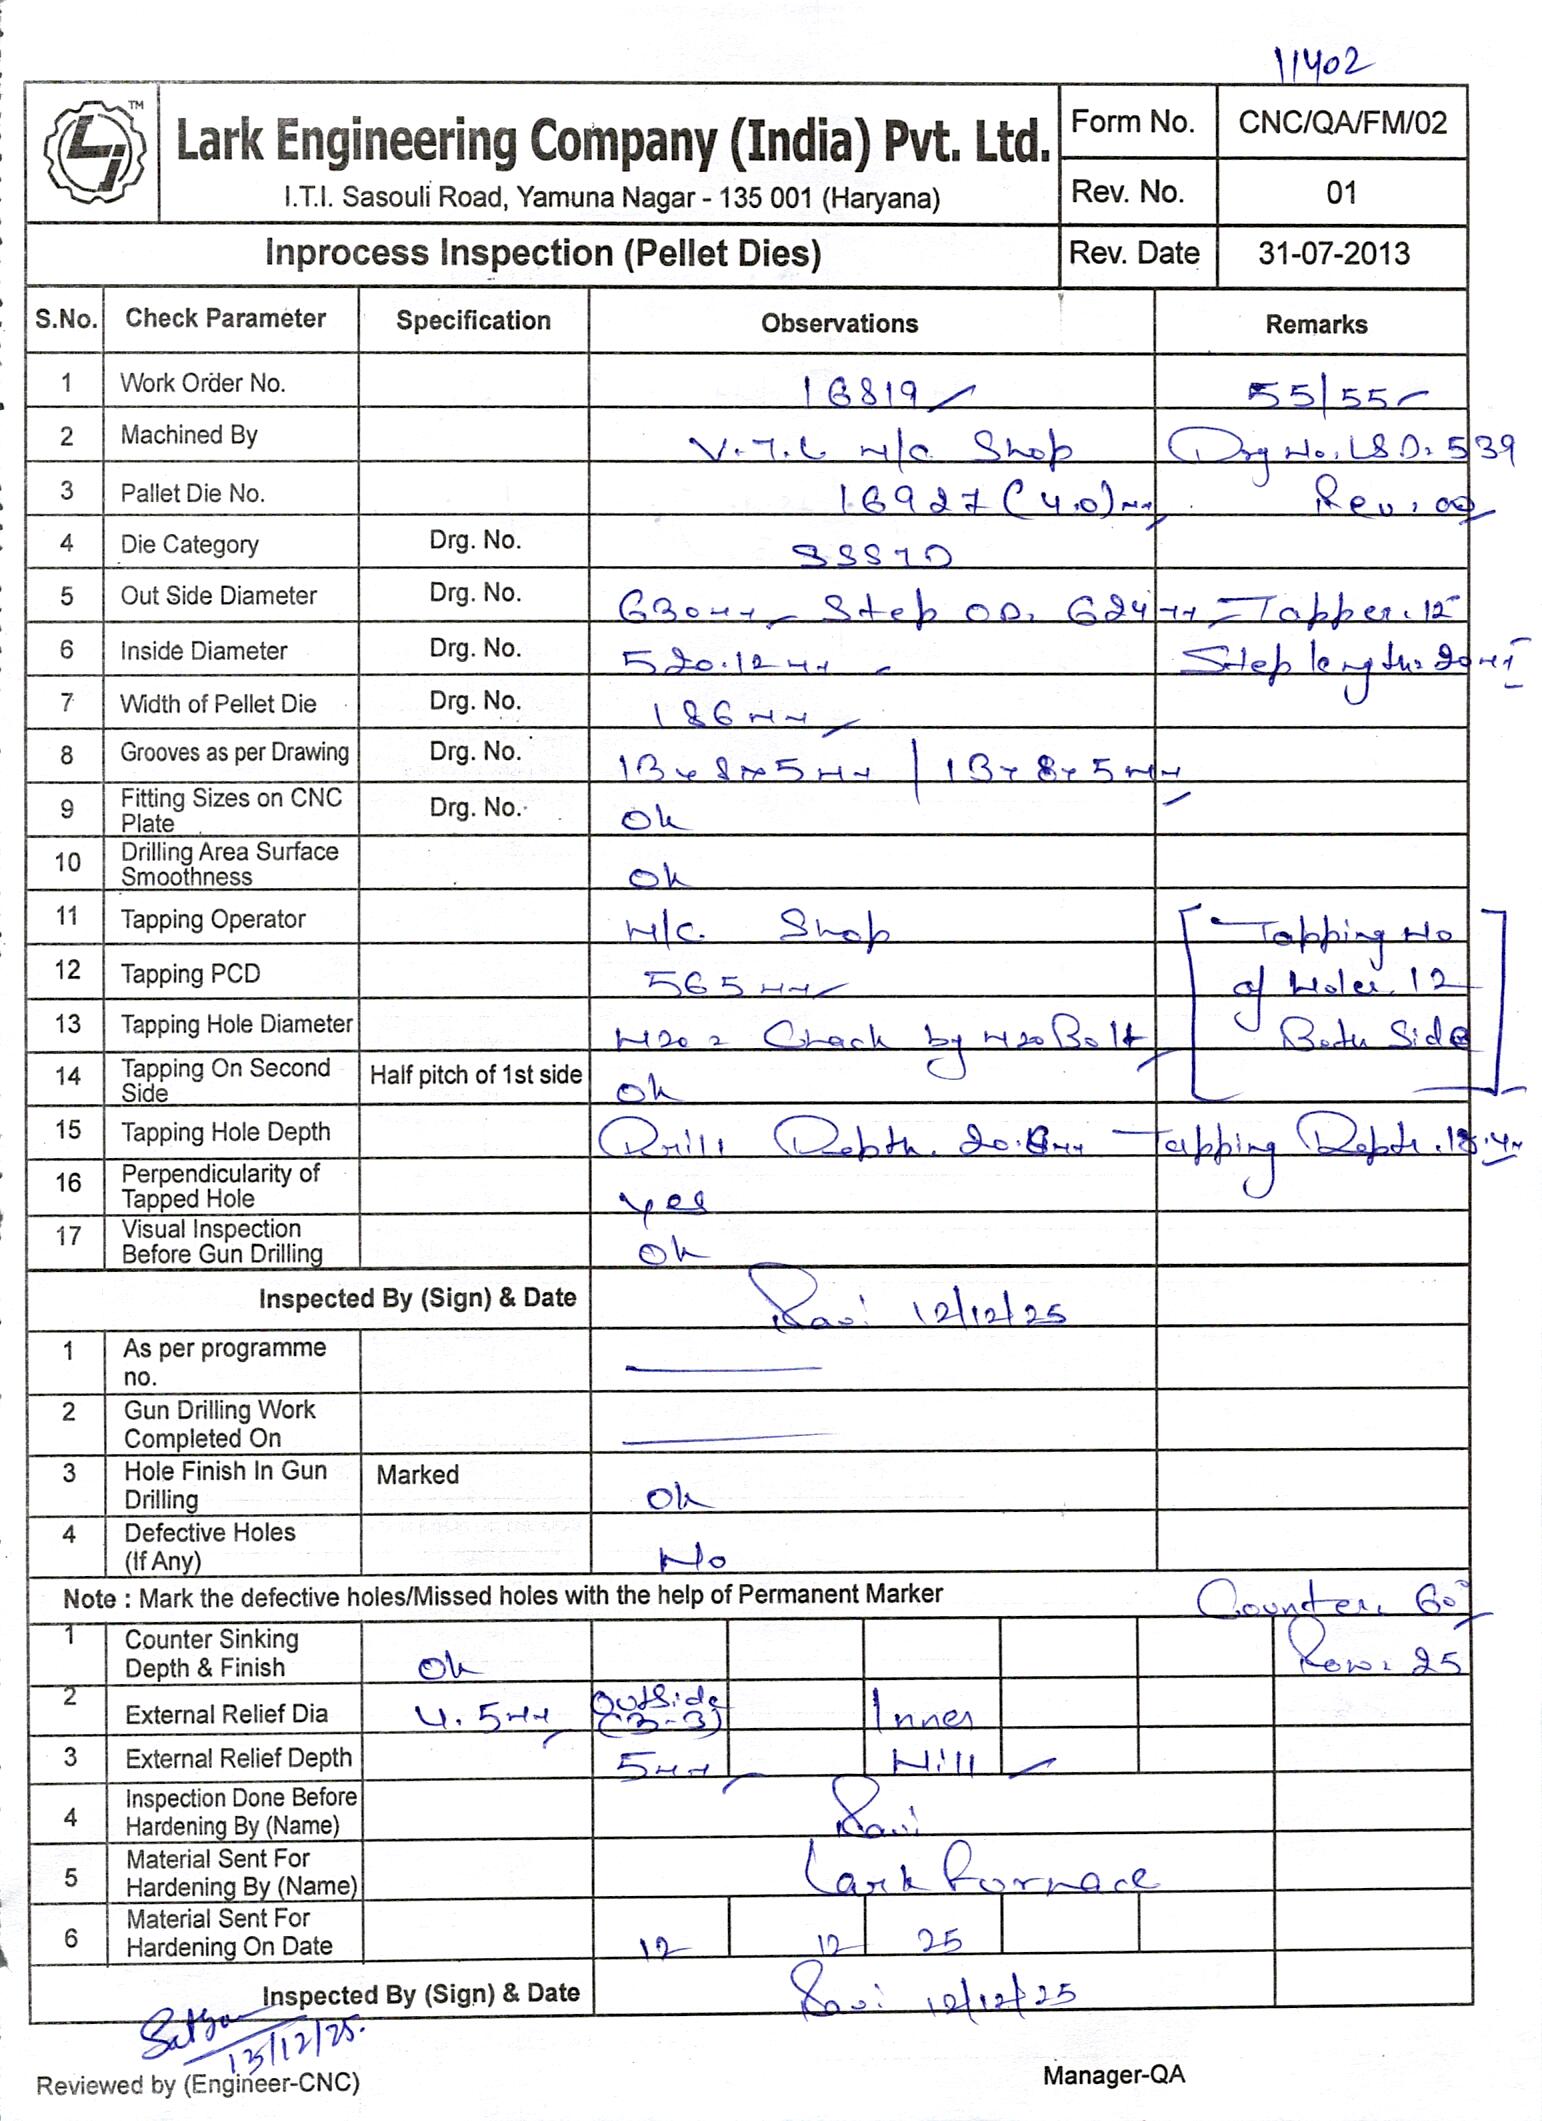 11402
LI TM
Lark Engineering Company (India) Pvt. Ltd.
I.T.I. Sasouli Road, Yamuna Nagar - 135 001 (Haryana)
Form No. CNC/QA/FM/02
Rev. No. 01
Inprocess Inspection (Pellet Dies) Rev. Date 31-07-2013
S.No. Check Parameter Specification Observations Remarks
1 Work Order No. 16819 55/55
2 Machined By V.T.L M/C Shop Drg No. LSD. 539
3 Pallet Die No. 16927 (4.0)mm Rev: 00
4 Die Category Drg. No. SSSTD
5 Out Side Diameter Drg. No. 630mm Step OD. 624mm Tapper. 12°
6 Inside Diameter Drg. No. 520.12mm Step length: 20mm
7 Width of Pellet Die Drg. No. 186mm
8 Grooves as per Drawing Drg. No. 13x8x5mm | 13x8x5mm
9 Fitting Sizes on CNC Plate Drg. No. Ok
10 Drilling Area Surface Smoothness Ok
11 Tapping Operator M/C. Shop Tapping No
12 Tapping PCD 565mm of Holes. 12
13 Tapping Hole Diameter M20 = Check by M20 Bolt Both Side
14 Tapping On Second Side Half pitch of 1st side Ok
15 Tapping Hole Depth Drill Depth. 20.8mm Tapping Depth.
16 Perpendicularity of Tapped Hole Yes
17 Visual Inspection Before Gun Drilling Ok
Inspected By (Sign) & Date Ravi 12/12/25
1 As per programme no.
2 Gun Drilling Work Completed On
3 Hole Finish In Gun Drilling Marked Ok
4 Defective Holes (If Any) No
Note : Mark the defective holes/Missed holes with the help of Permanent Marker Counter. 60°
1 Counter Sinking Depth & Finish Ok Row: 25
2 External Relief Dia 4.5mm Outside (3-3) Inner
3 External Relief Depth 5mm Nill
4 Inspection Done Before Hardening By (Name) Ravi
5 Material Sent For Hardening By (Name) Lark Furnace
6 Material Sent For Hardening On Date 12 12 25
Inspected By (Sign) & Date Ravi 12/12/25
13/12/25.
Reviewed by (Engineer-CNC) Manager-QA